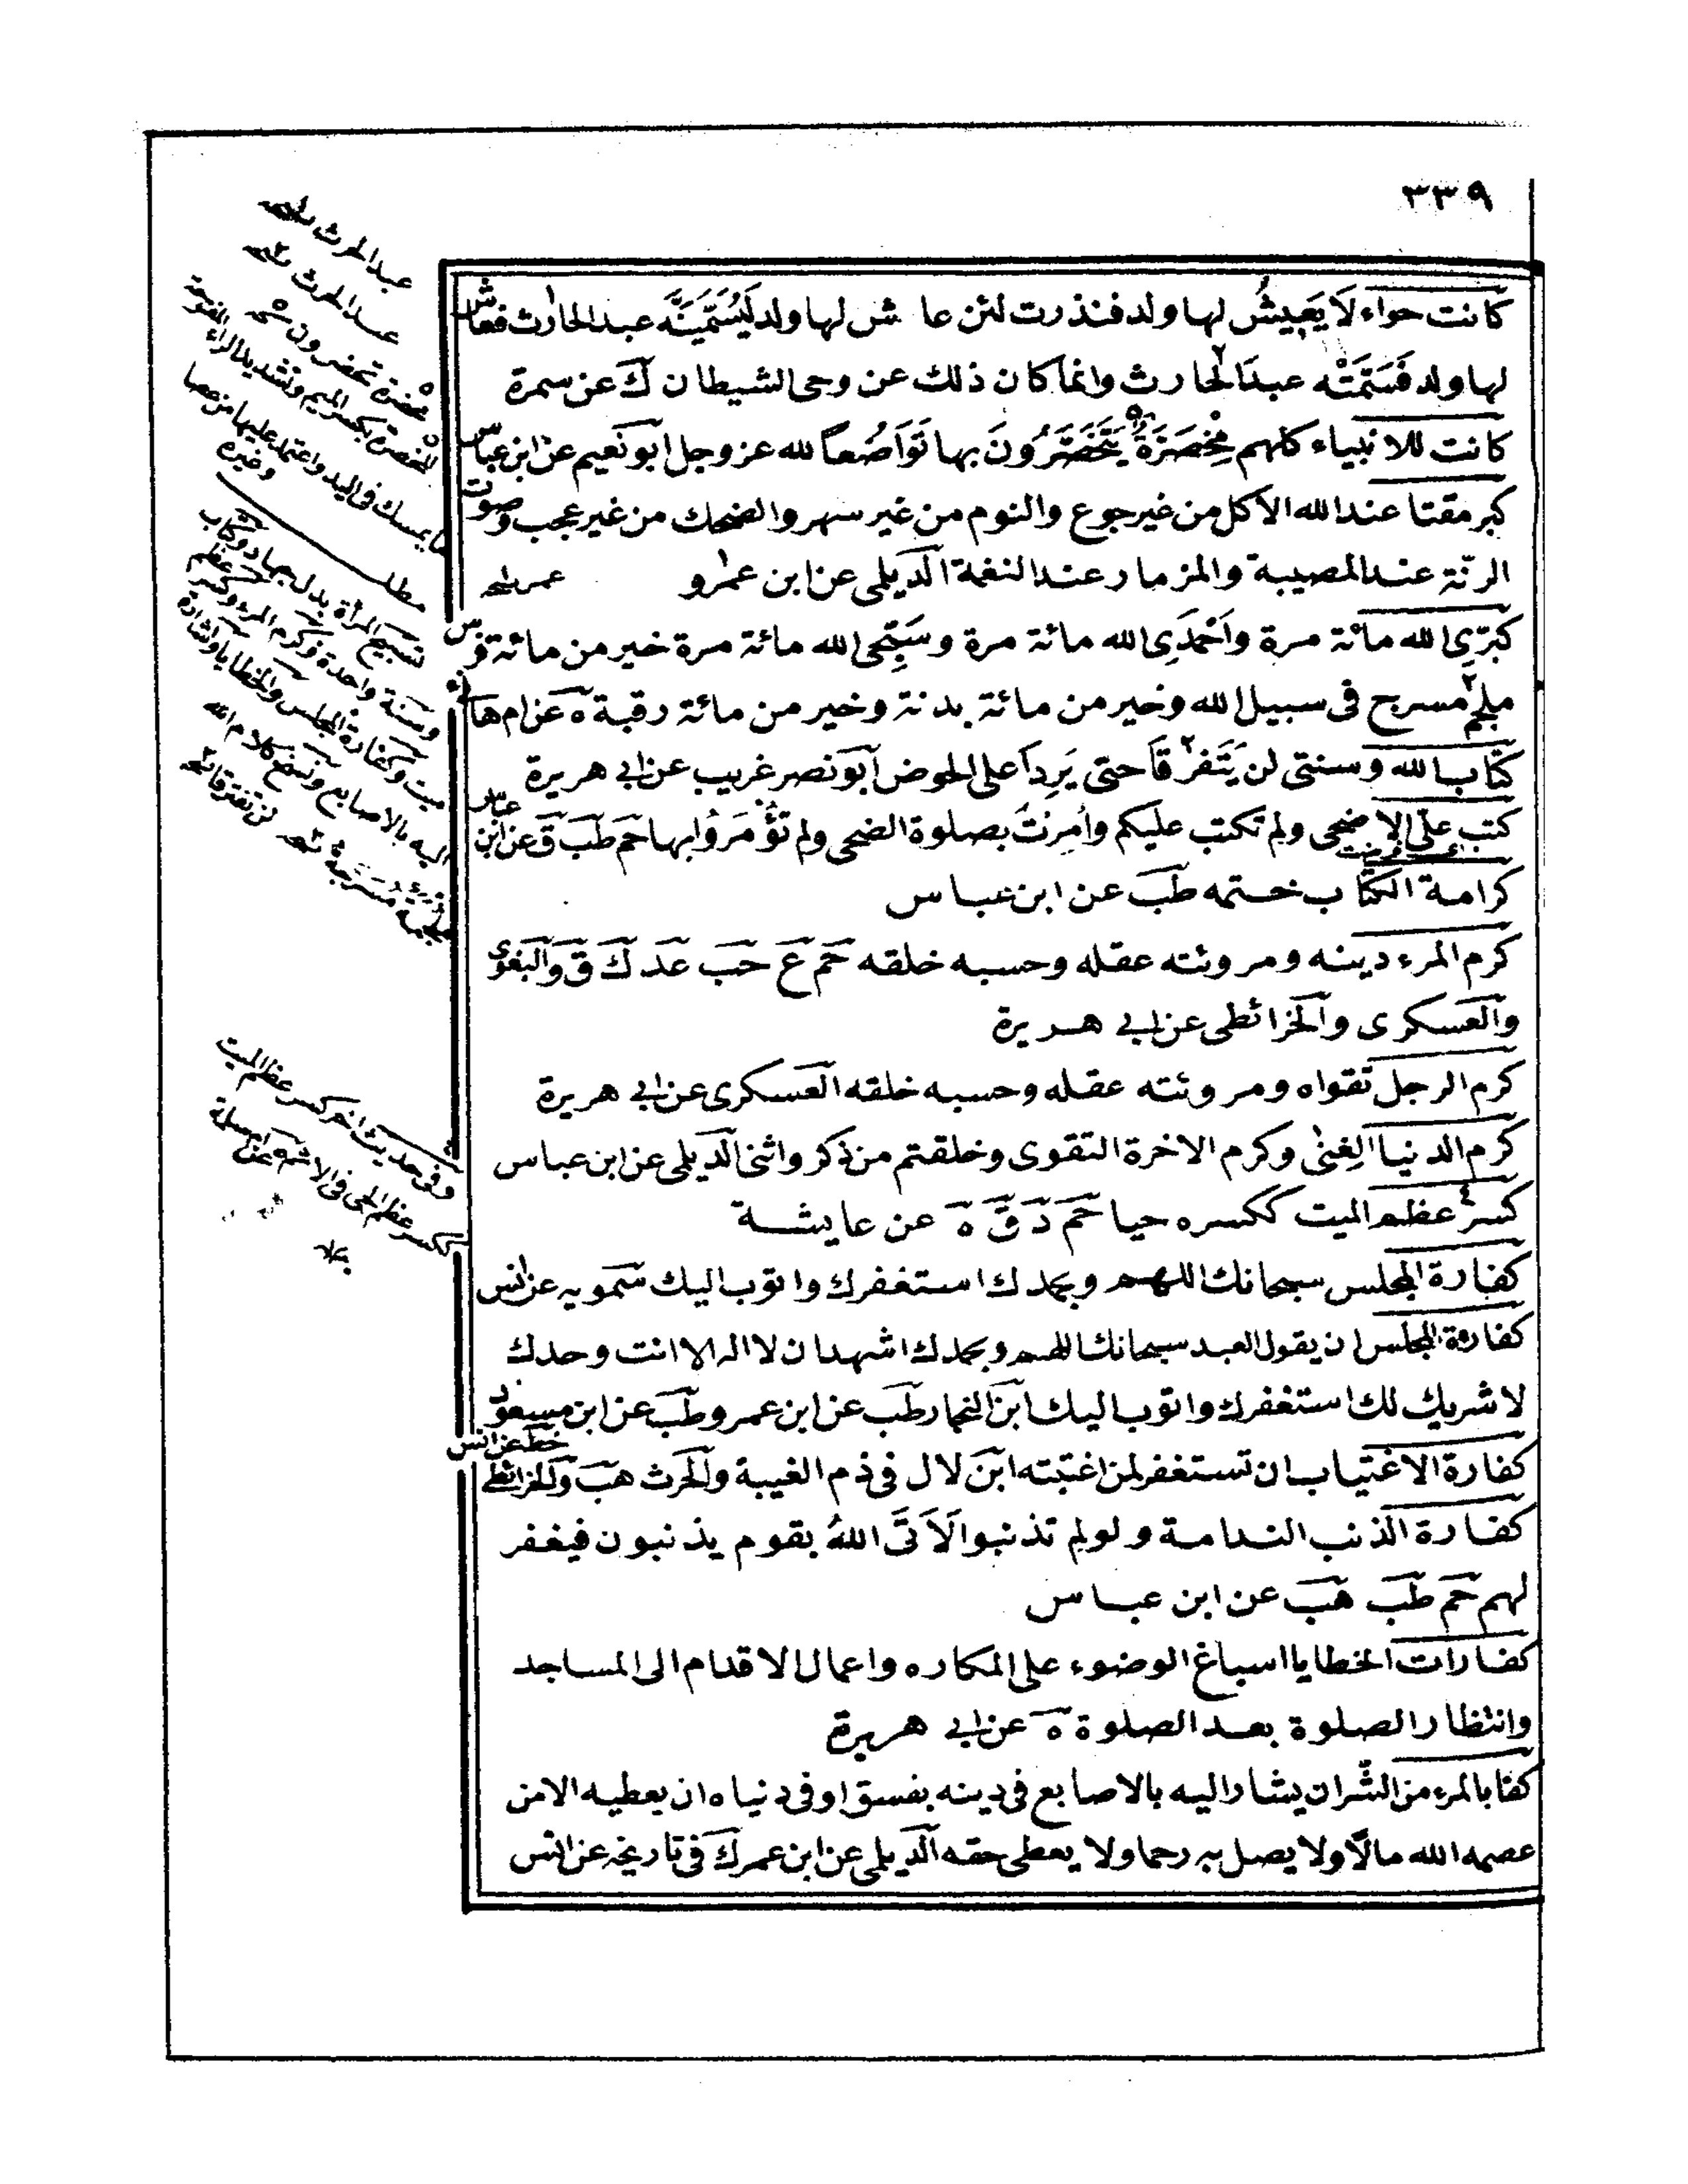 ٣٣٩
كانت حواء لَا يَعِيشُ لها ولد فنذرت لئن عاش لها ولد لَيُسَمِّيَنَّه عبد الحارث فعاش
لها ولد فَسَمَّتْه عبدَ الحارث وانما كان ذلك عن وحى الشيطان ك عن سمرة
كانت للانبياء كلهم مِخْصَرَةٌ يَتَخَصَّرُونَ بها تَوَاضُعاً لله عز وجل ابو نعيم عن ابن عباس
كبر مقتا عند الله الاكل من غير جوع والنوم من غير سهر والضحك من غير عجب وصوت
الرنّة عند المصيبة والمزمار عند النغمة الديلمى عن ابن عمرو
كبّرِى الله مائة مرة واَحْمَدِى الله مائة مرة وسَبِّحِى الله مائة مرة خير من مائة فرس
ملجم مسرج فى سبيل الله وخير من مائة بدنة وخير من مائة رقبة ه عن ام هانئ
كتاب الله وسنتى لن يَتَفَرَّقَا حتى يَرِدَا على الحوض ابو نصر غريب عن ابى هريرة
كتب علىّ الاضحى ولم تكتب عليكم واُمِرْتُ بصلوة الضحى ولم تُؤْمَرُوا بها حم طب ق عن ابن عباس
كرامة الكتاب ختمه طب عن ابن عباس
كرم المرء دينه ومروئته عقله وحسبه خلقه حم ع حب عد ك ق والبغوى
والعسكرى والخرائطى عن ابى هريرة
كرم الرجل تقواه ومروئته عقله وحسبه خلقه العسكرى عن ابى هريرة
كرم الدنيا الغِنٰى وكرم الاخرة التقوى وخلقتم من ذكر وانثى الديلمى عن ابن عباس
كسر عظم الميت ككسره حيا حم د ق ه عن عايشة
كفارة المجلس سبحانك اللهم وبحمدك استغفرك واتوب اليك سمويه عن انس
كفارة المجلس ان يقول العبد سبحانك اللهم وبحمدك اشهد ان لا اله الا انت وحدك
لا شريك لك استغفرك واتوب اليك ابن النجار طب عن ابن عمرو طب عن ابن مسعود
كفارة الاغتياب ان تستغفر لمن اغتبته ابن لال فى ذم الغيبة والحرث هب والخرائطى خط عن انس
كفارة الذنب الندامة ولو لم تذنبوا لَاَتَى اللهُ بقوم يذنبون فيغفر
لهم حم طب هب عن ابن عباس
كفارات الخطايا اسباغ الوضوء على المكاره واعمال الاقدام الى المساجد
وانتظار الصلوة بعد الصلوة ه عن ابى هريرة
كفا بالمرء من الشّر ان يشار اليه بالاصابع فى دينه بفسق او فى دنياه ان يعطيه الا من
عصمه الله مالًا ولا يصل به رحما ولا يعطى حقه الديلمى عن ابن عمر ك فى تاريخه عن انس
عبد الحرث
عبد الحرث
مخصرة تخصرون
المخصرة بكسر الميم وتشديد الراء المفتوحة
ما يمسك فى اليد واعتمد عليها من عصا
وغيره
مطلب
تسبيح المرأة بدل جهاد وكتاب
وسنة واحدة وكرم المرء وكسر عظم
ميت وكفارة المجلس والخطايا واشارة
اليه بالاصابع
لن تفترقا
وفى حديث اخر كسر عظم الميت
ككسر عظم الحى فى الاثم ه عن ام سلمة